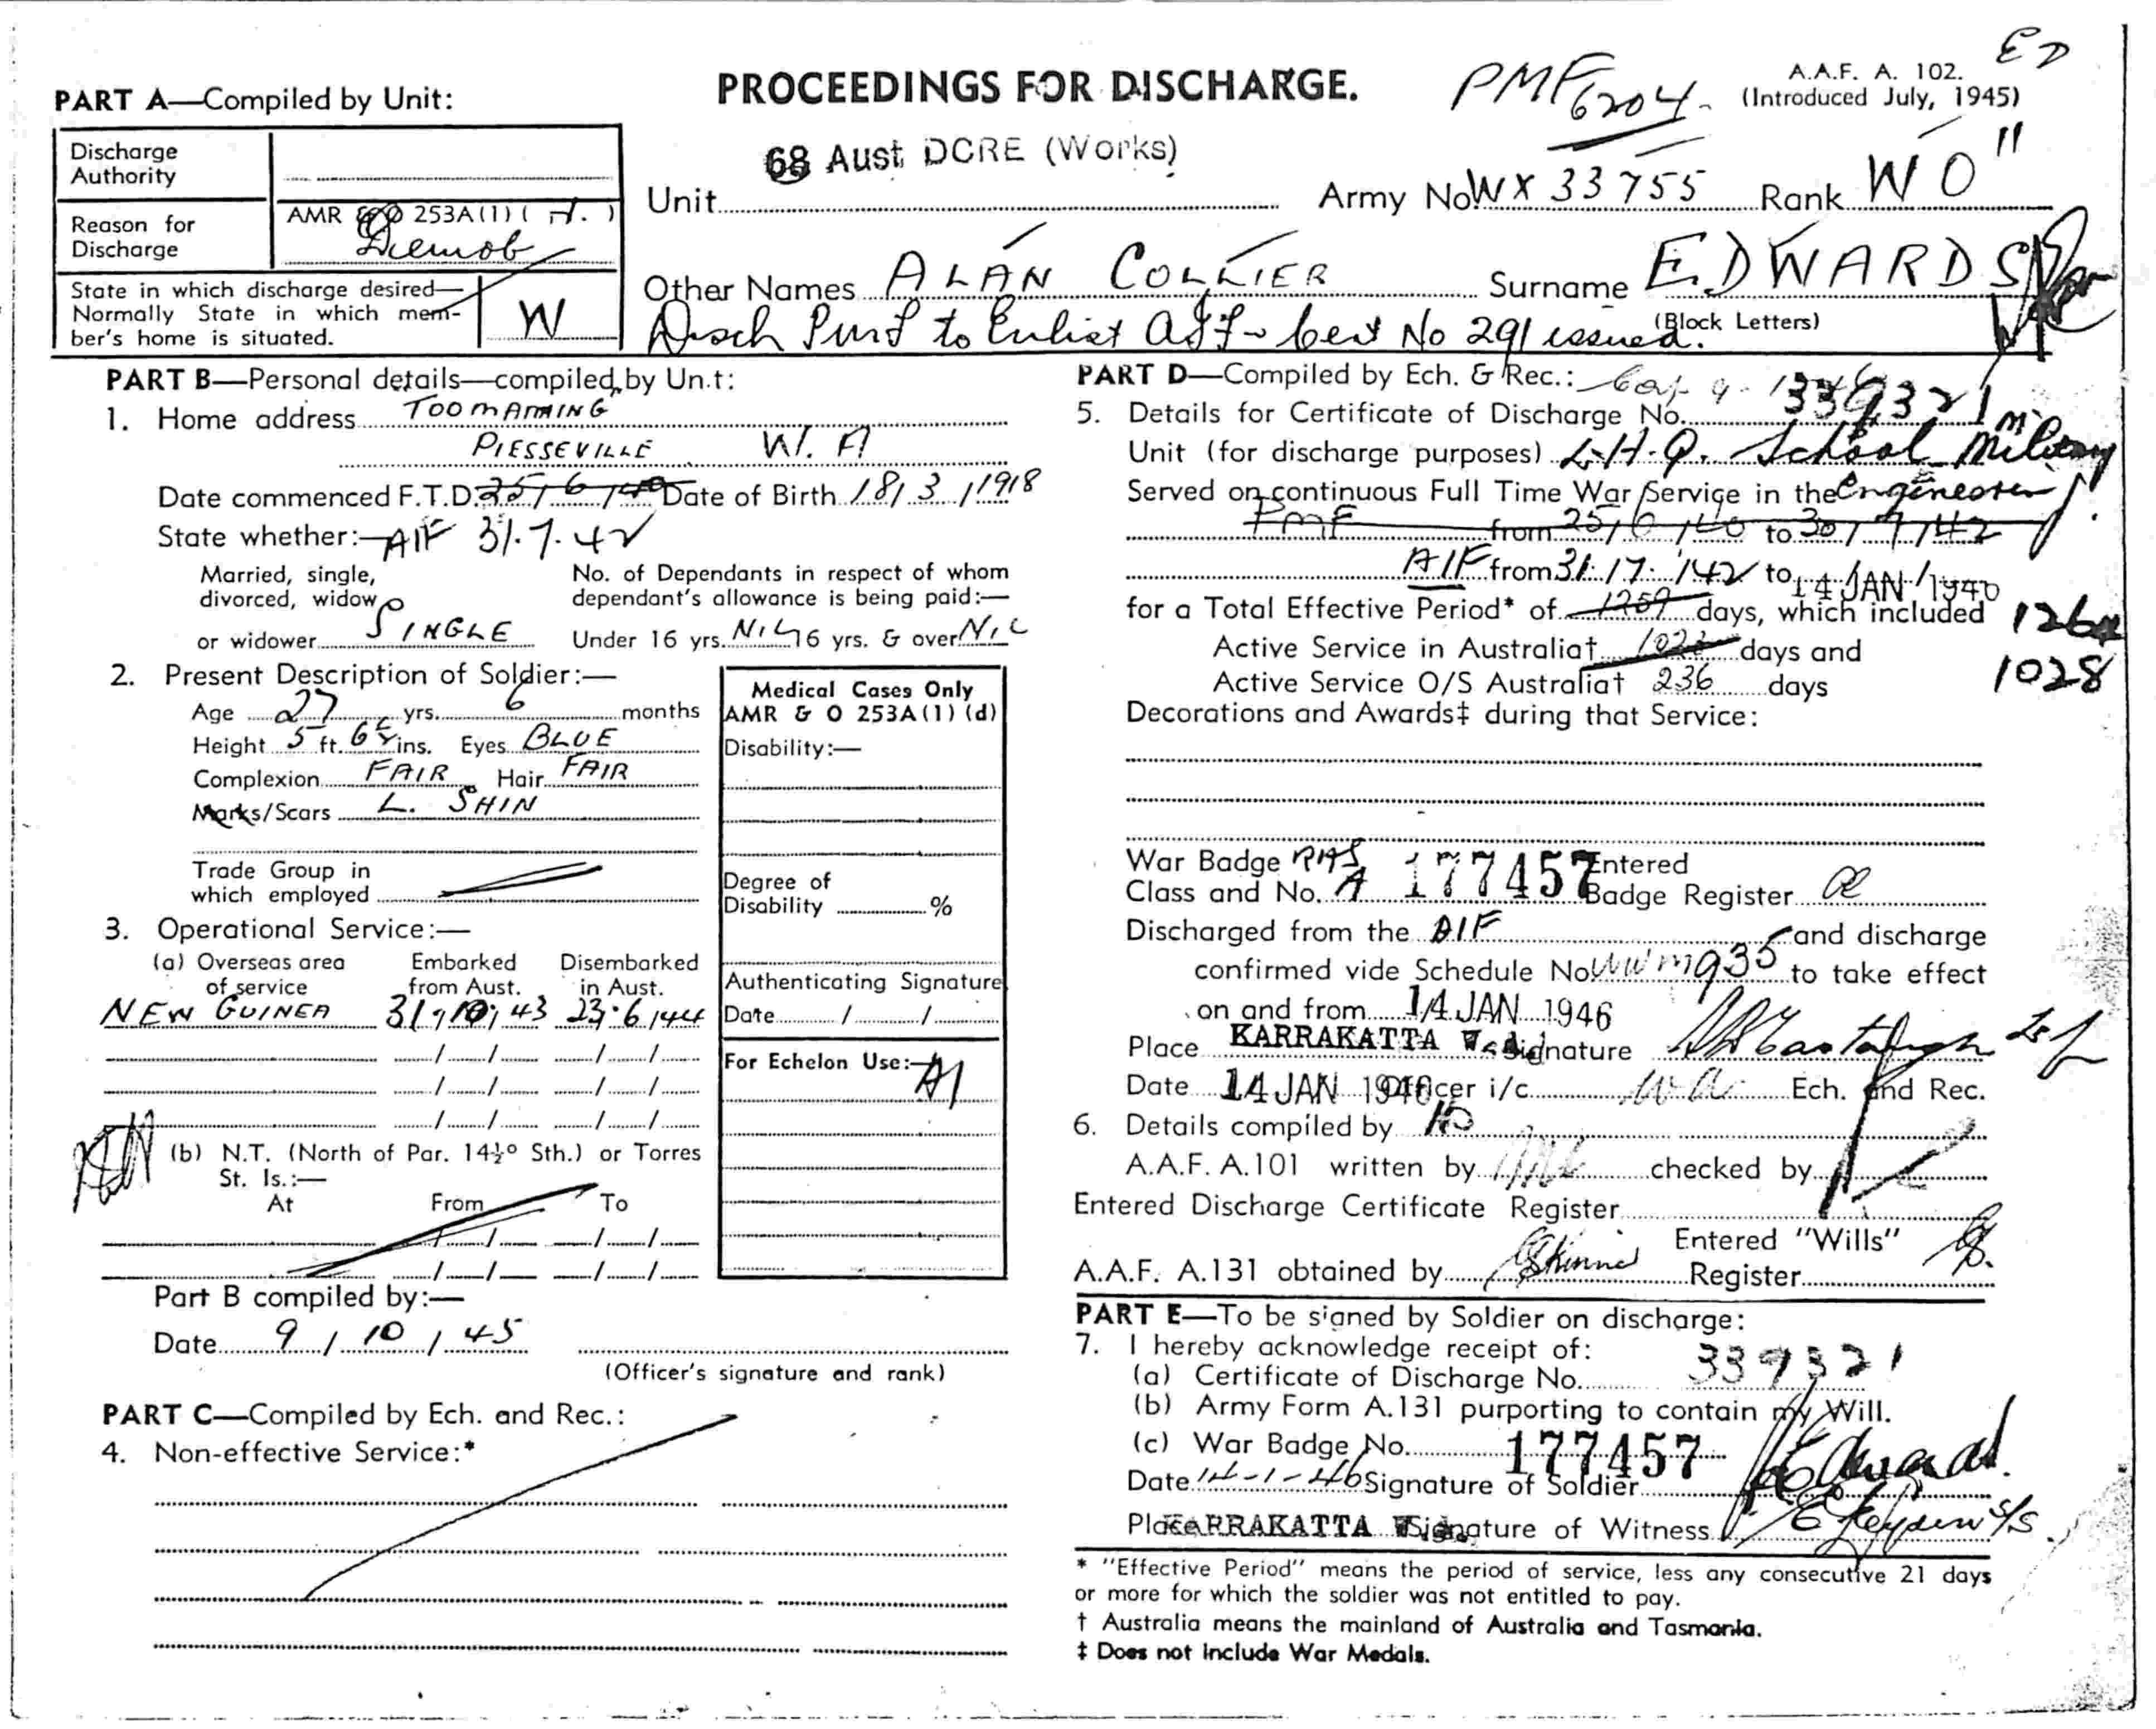 PROCEEDINGS FOR DISCHARGE.
PMF 6204
A.A.F. A. 102.
(Introduced July, 1945)
ED
PART A—Compiled by Unit:
Discharge
Authority
Reason for
Discharge
AMR & O 253A(1) ( H. )
Demob
State in which discharge desired—
Normally State in which mem-
ber's home is situated.
W
68 Aust DCRE (Works)
Unit
Army No. WX 33755 Rank WO"
Other Names ALAN COLLIER Surname EDWARDS
(Block Letters)
Disch Purp to Enlist AIF - cert No 291 issued.
PART B—Personal details—compiled by Unit:
1. Home address TOOMAMING
PIESSEVILLE W. A
Date commenced F.T.D. 25/6/40 Date of Birth 18/3/1918
State whether:— AIF 31.7.42
Married, single,
divorced, widow
or widower SINGLE
No. of Dependants in respect of whom
dependant's allowance is being paid:—
Under 16 yrs. NIL 16 yrs. & over NIL
2. Present Description of Soldier:—
Age 27 yrs. 6 months
Height 5 ft. 6½ ins. Eyes BLUE
Complexion FAIR Hair FAIR
Marks/Scars L. SHIN
Trade Group in
which employed
3. Operational Service:—
(a) Overseas area
of service
Embarked
from Aust.
Disembarked
in Aust.
NEW GUINEA 31/10/43 23/6/44
(b) N.T. (North of Par. 14½° Sth.) or Torres
St. Is.:—
At From To
Part B compiled by:—
Date 9/10/45
(Officer's signature and rank)
PART C—Compiled by Ech. and Rec.:
4. Non-effective Service:*
Medical Cases Only
AMR & O 253A(1) (d)
Disability:—
Degree of
Disability %
Authenticating Signature
Date / /
For Echelon Use:—
A1
PART D—Compiled by Ech. & Rec.:
5. Details for Certificate of Discharge No. 339321
Unit (for discharge purposes) L.H.Q. School Military
Served on continuous Full Time War Service in the Engineering
PMF from 25/6/40 to 30/7/42
AIF from 31/7/42 to 14 JAN 1946
for a Total Effective Period* of 1259 days, which included 1264
Active Service in Australia† 1023 days and
1028
Active Service O/S Australia† 236 days
Decorations and Awards‡ during that Service:
War Badge RAS
Class and No. A 177457
Entered
Badge Register
Discharged from the AIF and discharge
confirmed vide Schedule No. 935 to take effect
on and from 14 JAN 1946
Place KARRAKATTA W.A. Signature
Date 14 JAN 1946 Officer i/c WA Ech. and Rec.
6. Details compiled by
A.A.F. A.101 written by checked by
Entered Discharge Certificate Register
A.A.F. A.131 obtained by Skinner
Entered "Wills"
Register
PART E—To be signed by Soldier on discharge:
7. I hereby acknowledge receipt of:
(a) Certificate of Discharge No. 339321
(b) Army Form A.131 purporting to contain my Will.
(c) War Badge No. 177457
Date 14-1-46 Signature of Soldier Edwards
Place KARRAKATTA Signature of Witness
* "Effective Period" means the period of service, less any consecutive 21 days
or more for which the soldier was not entitled to pay.
† Australia means the mainland of Australia and Tasmania.
‡ Does not Include War Medals.